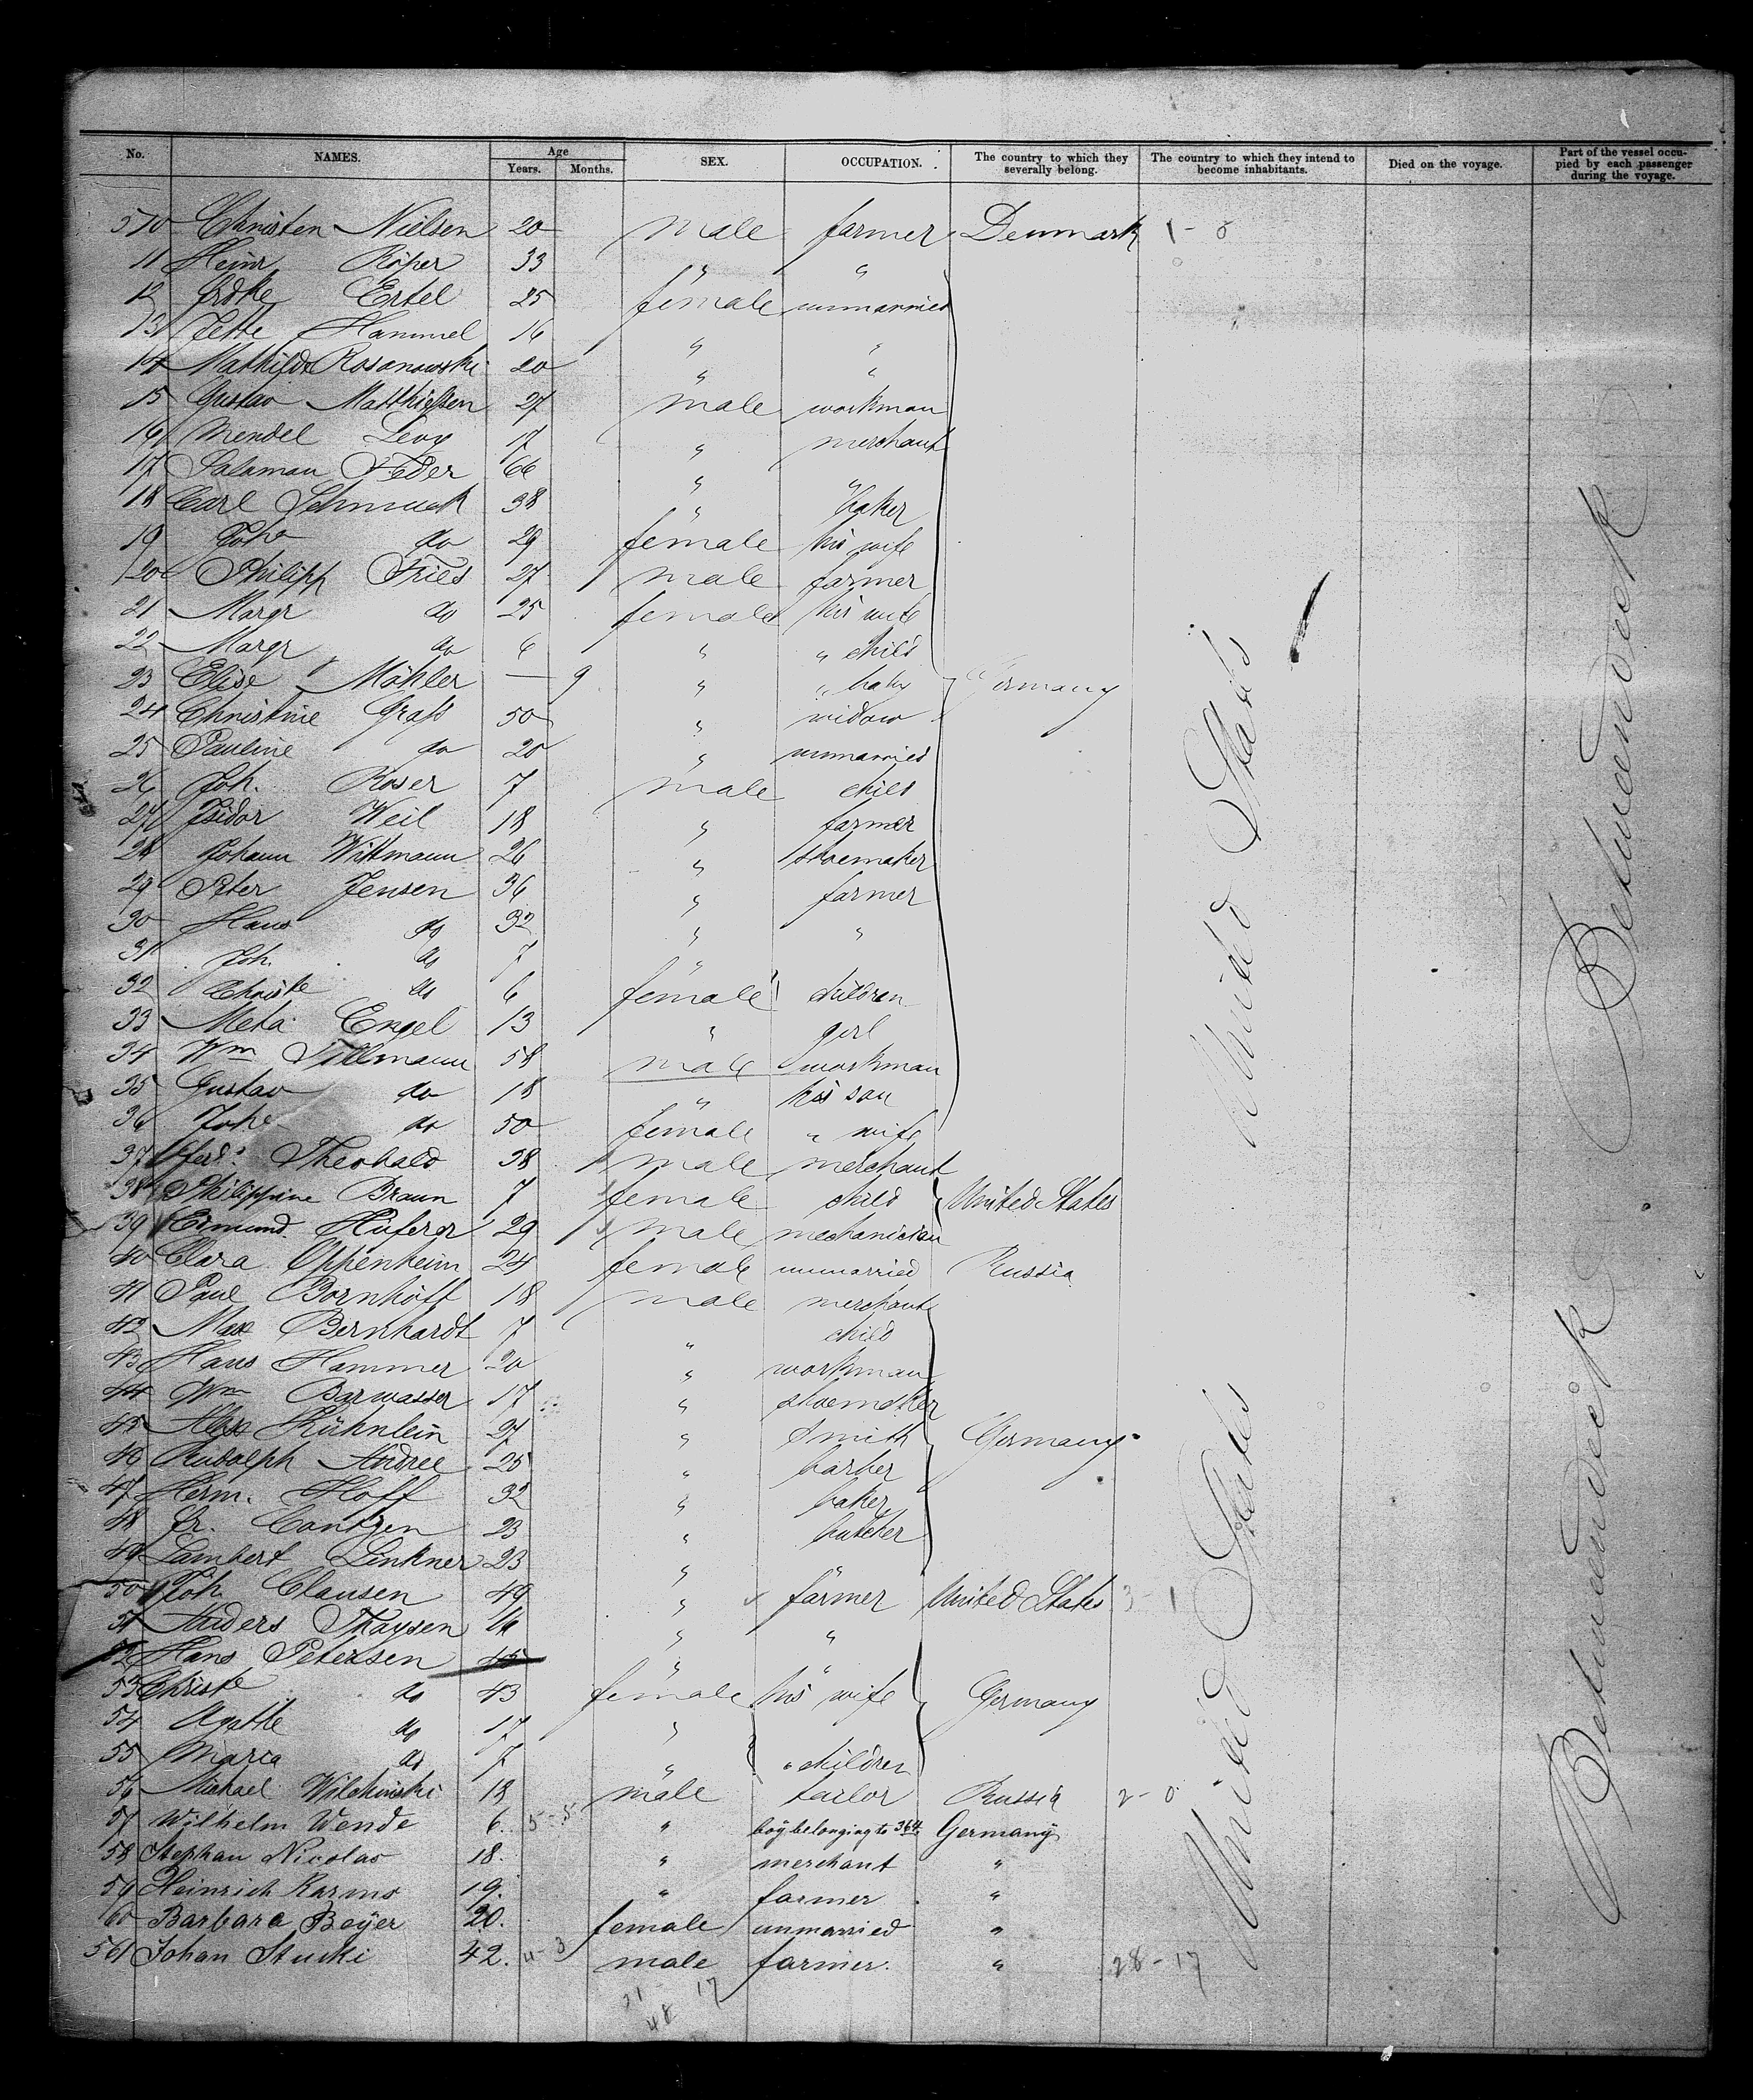 No. NAMES. Age Years. Months. SEX. OCCUPATION. The country to which they severally belong. The country to which they intend to become inhabitants. Died on the voyage. Part of the vessel occupied by each passenger during the voyage.
510 Christen Nielsen 20 male farmer Denmark 1-0
11 Heinr Röper 33 " "
12 Ertel 25 female unmarried
13 Jette Hammel 16 " "
14 Mathilde Rosanowski 20 " "
15 Gustav Matthießen 27 male workman
16 Mendel Levy 17 " merchant
17 Salaman Feder 66 " "
18 Carl Schmuck 38 " baker
19 Johe do 29 female his wife
20 Philipp Fries 27 male farmer
21 Margr do 25 female his wife
22 Margr do 6 " " child
23 Elise Möhler — 9 " " baby Germany
24 Christine Graf 50 " widow
25 Pauline do 20 " unmarried
26 Joh. Roser 7 male child
27 Isidor Weil 18 " farmer
28 Johann Wittmann 26 " shoemaker
29 Peter Jensen 36 " farmer
30 Hans do 32 " "
31 Joh. do 7 "
32 Christe do 6 female children
33 Meta Engel 13 " girl
34 Wm Tillmann 58 male workman
35 Gustav do 18 " his son
36 Johe do 50 female " wife
37 Ferd. Theobald 38 male merchant
38 Philippine Braun 7 female child United States
39 Edmund Huferer 29 male mechanician
40 Clara Oppenheim 24 female unmarried Russia
41 Paul Bornhöft 18 male merchant
42 Max Bernhardt 7 " child
43 Hans Hammer 20 " workman
44 Wm Barwasser 17 " shoemaker
45 Alex Kühnlein 27 " smith Germany
46 Rudolph Andree 25 " barber
47 Herm. Hoff 32 " baker
48 Fr. Contzen 23 " butcher
49 Lambert Linkner 23 " "
50 Joh. Clausen 49 " farmer United States 3-1
51 Anders Thaysen 16 " "
52 Hans Petersen 45 " "
53 Christe do 43 female his wife Germany
54 Agathe do 17 "
55 Maria do 7 " " children
56 Michael Wilchinski 18 male tailor Russia 2-0
57 Wilhelm Wende 6. 5-5 " boy belonging to 364. Germany
58 Stephan Nicolas 18. " merchant "
59 Heinrich Karms 19. " farmer "
60 Barbara Boÿer 20. female unmarried "
561 Johan Stucki 42. 4-3 male farmer. " 28-17
31 17
48
United States
United States
Betweendeck
Betweendeck